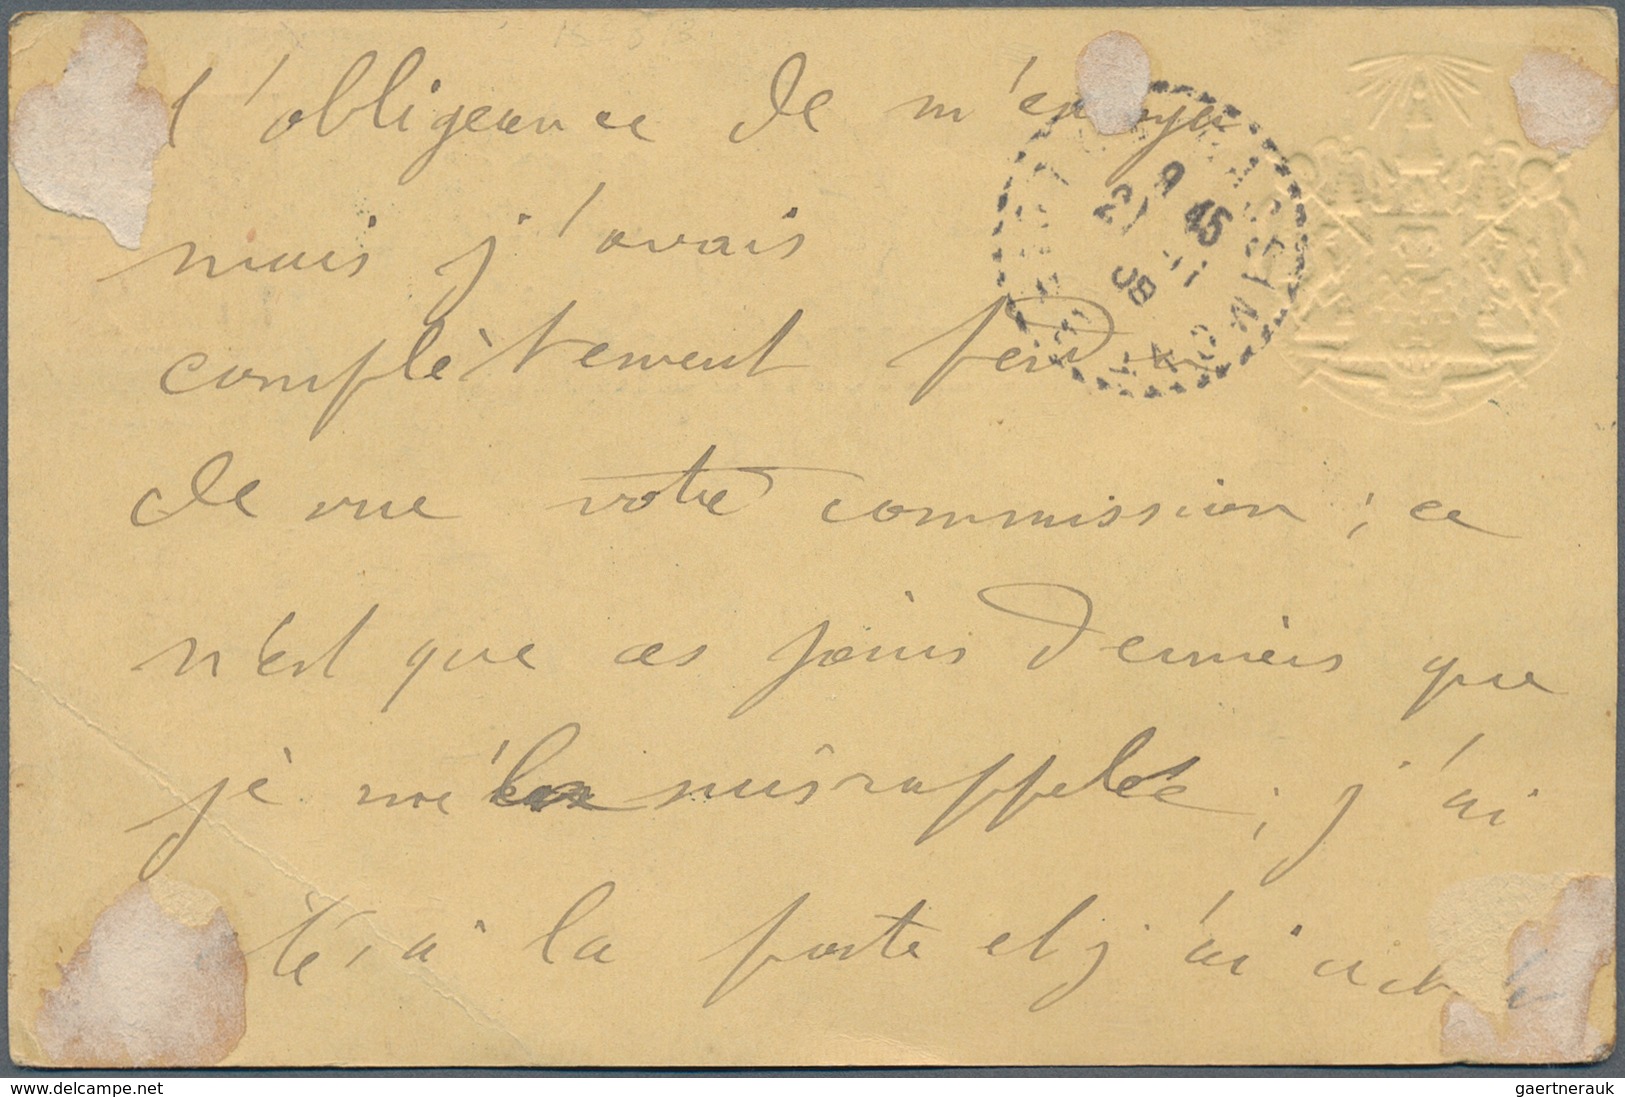 l'obligeance de m'envoyer
mais j'avais
complètement perdu
de vue votre commission ; ce
n'est que ces jours derniers que
je me suis rappelée ; j'ai
été à la poste et j'ai
21 45
gaertnerauk / delcampe.net